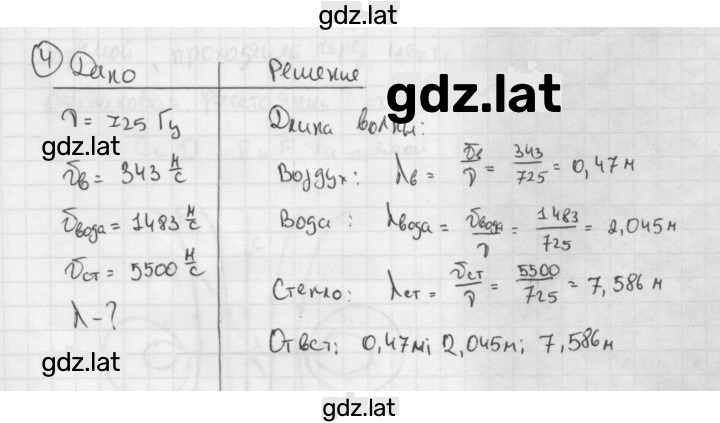 gdz.lat
4 Дано
ν = 725 Гц
gdz.lat
vв = 343 м/с
vвода = 1483 м/с
vст = 5500 м/с
λ - ?
gdz.lat
Решение
gdz.lat
Длина волны:
Воздух: λв = vв/ν = 343/725 = 0,47 м
Вода: λвода = vвода/ν = 1483/725 = 2,045 м
Стекло: λст = vст/ν = 5500/725 = 7,586 м
Ответ: 0,47м; 2,045м; 7,586м
gdz.lat